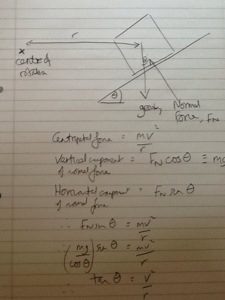 r
centre of
rotation
θ
gravity
Normal
force, F_N
Centripetal force = mv²/r
Vertical component = F_N cosθ ≡ mg
of normal force
Horizontal component = F_N sinθ
of normal force
∴ F_N sinθ = mv²/r
(mg/cosθ) sinθ = mv²/r
∴ tanθ = v²/r